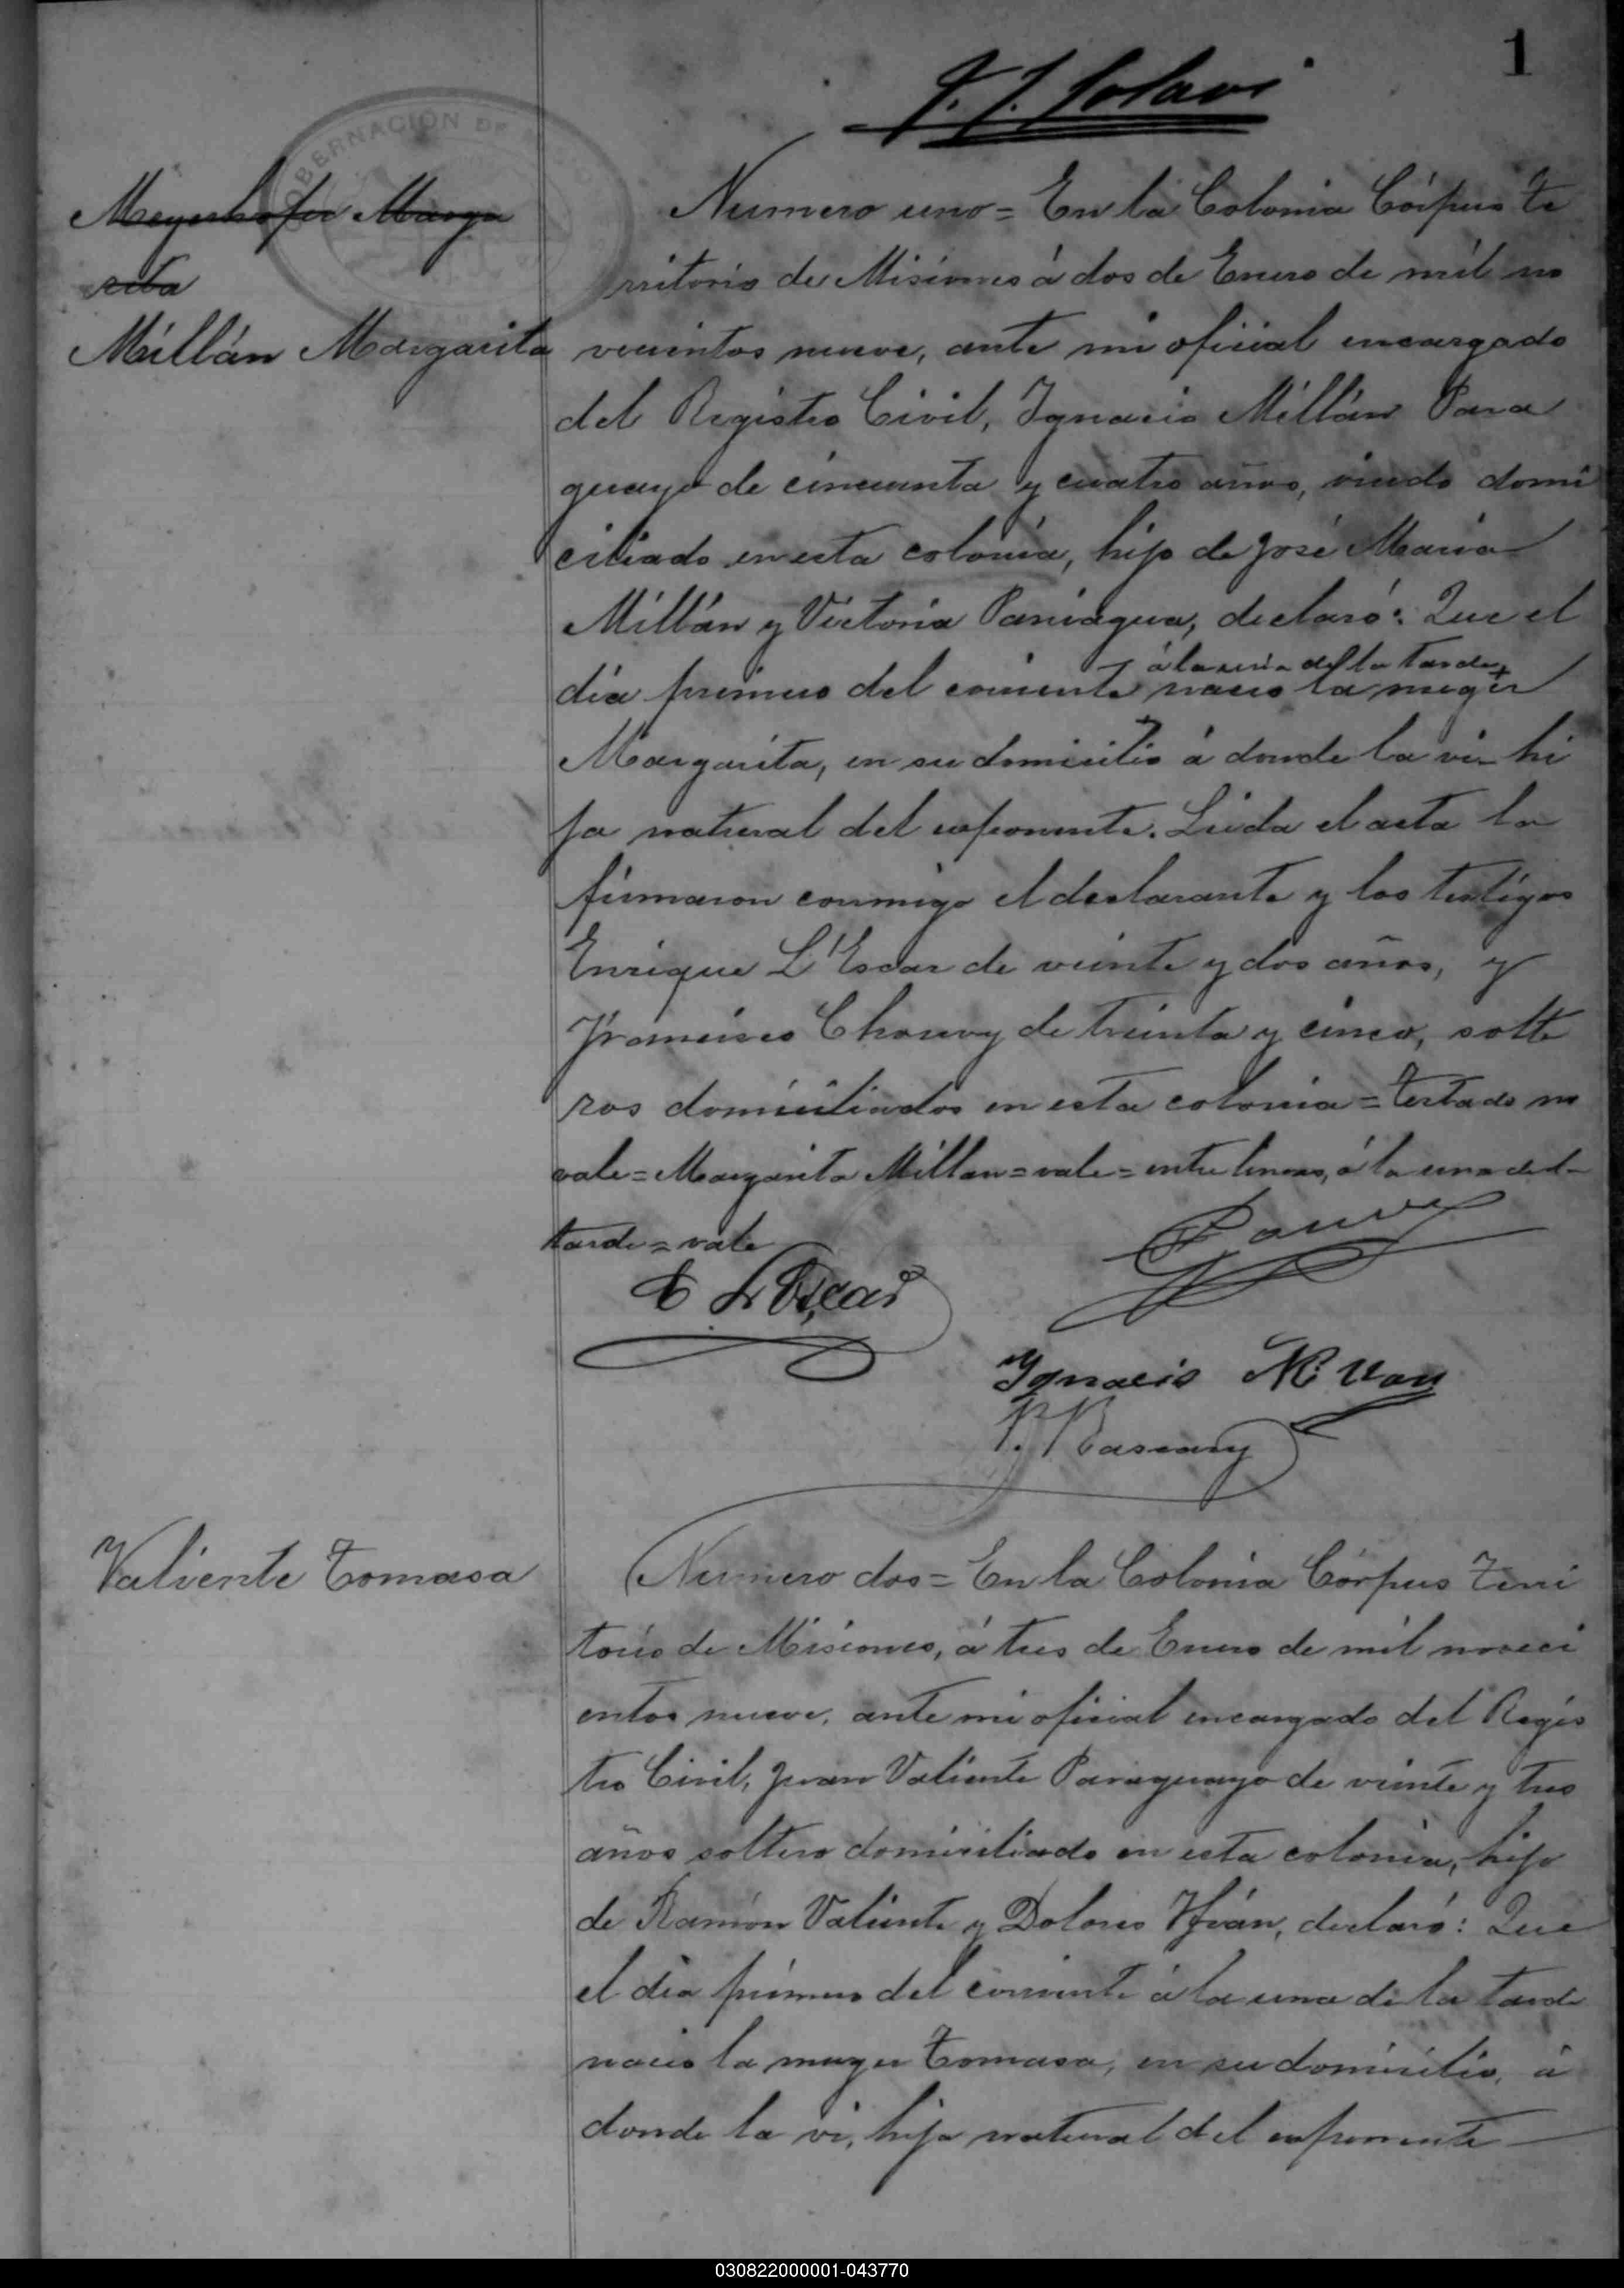 1
J. J. Solari
GOBERNACIÓN DE
Meyerhofer Marga
rita
Millán Margarita
Numero uno = En la Colonia Córpus te
rritorio de Misiones á dos de Enero de mil no
vecientos nueve, ante mi oficial encargado
del Registro Civil, Ignacio Millán Para
guayo de cincuenta y cuatro años, viudo domi
ciliado en esta colonia, hijo de José Maria
Millán y Victoria Paniagua, declaró: Que el
á la una de la tarde
día primero del corriente nacio la muger
Margarita, en su domicilio á donde la vi hi
ja natural del exponente. Leida el acta la
firmaron conmigo el declarante y los testigos
Enrique L'Escar de veinte y dos años, y
Francisco Chouvy de treinta y cinco, solte
ros domiciliados en esta colonia = testado no
vale = Margarita Millan = vale = entre lineas, á la una de la
tarde = vale
E L'Escar
Ignacio Millan
Valiente Tomasa
Numero dos = En la Colonia Córpus Terri
torio de Misiones, á tres de Enero de mil noveci
entos nueve, ante mi oficial encargado del Regis
tro Civil, Juan Valiente Paraguayo de veinte y tres
años soltero domiciliado en esta colonia, hijo
de Ramón Valiente y Dolores declaró: Que
el día primero del corriente á la una de la tarde
nacio la muger Tomasa, en su domicilio, á
donde la vi, hija natural del exponente
030822000001-043770